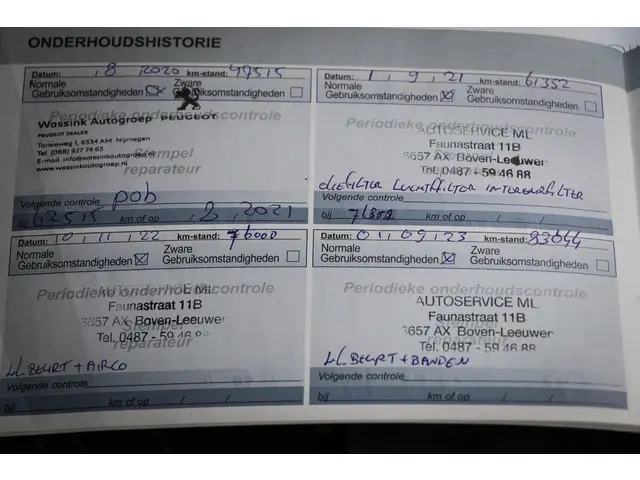 ONDERHOUDSHISTORIE
Datum: , 8 2020 km-stand: 47515
Normale Zware
Gebruiksomstandigheden Gebruiksomstandigheden
Periodieke onderhoudscontrole
Wassink Autogroep PEUGEOT
PEUGEOT DEALER
Tarweweg 1, 6534 AM Nijmegen
Tel. (088) 927 74 65
E-mail info@wassinkautogroep.nl
www.wassinkautogroep.nl
Stempel
reparateur
Volgende controle pob
bij 62515 km of op , 8 , 2021
Datum: 1 , 9 , 21 km-stand: 61352
Normale Zware
Gebruiksomstandigheden Gebruiksomstandigheden
Periodieke onderhoudscontrole
AUTOSERVICE ML
Faunastraat 11B
6657 AX Boven-Leeuwen
Tel. 0487 - 59 46 88
OLIEFILTER LUCHTFILTER INTERIEURFILTER
Volgende controle
bij km of op / /
Datum: 10 , 11 , 22 km-stand: 76000
Normale Zware
Gebruiksomstandigheden Gebruiksomstandigheden
Periodieke onderhoudscontrole
AUTOSERVICE ML
Faunastraat 11B
6657 AX Boven-Leeuwen
Stempel
Tel. 0487 - 59 46 88
reparateur
KL. BEURT + AIRCO
Volgende controle
bij km of op / /
Datum: 01 , 09 , 23 km-stand: 83644
Normale Zware
Gebruiksomstandigheden Gebruiksomstandigheden
Periodieke onderhoudscontrole
AUTOSERVICE ML
Faunastraat 11B
6657 AX Boven-Leeuwen
Tel. 0487 - 59 46 88
reparateur
KL. BEURT + BANDEN
Volgende controle
bij km of op / /